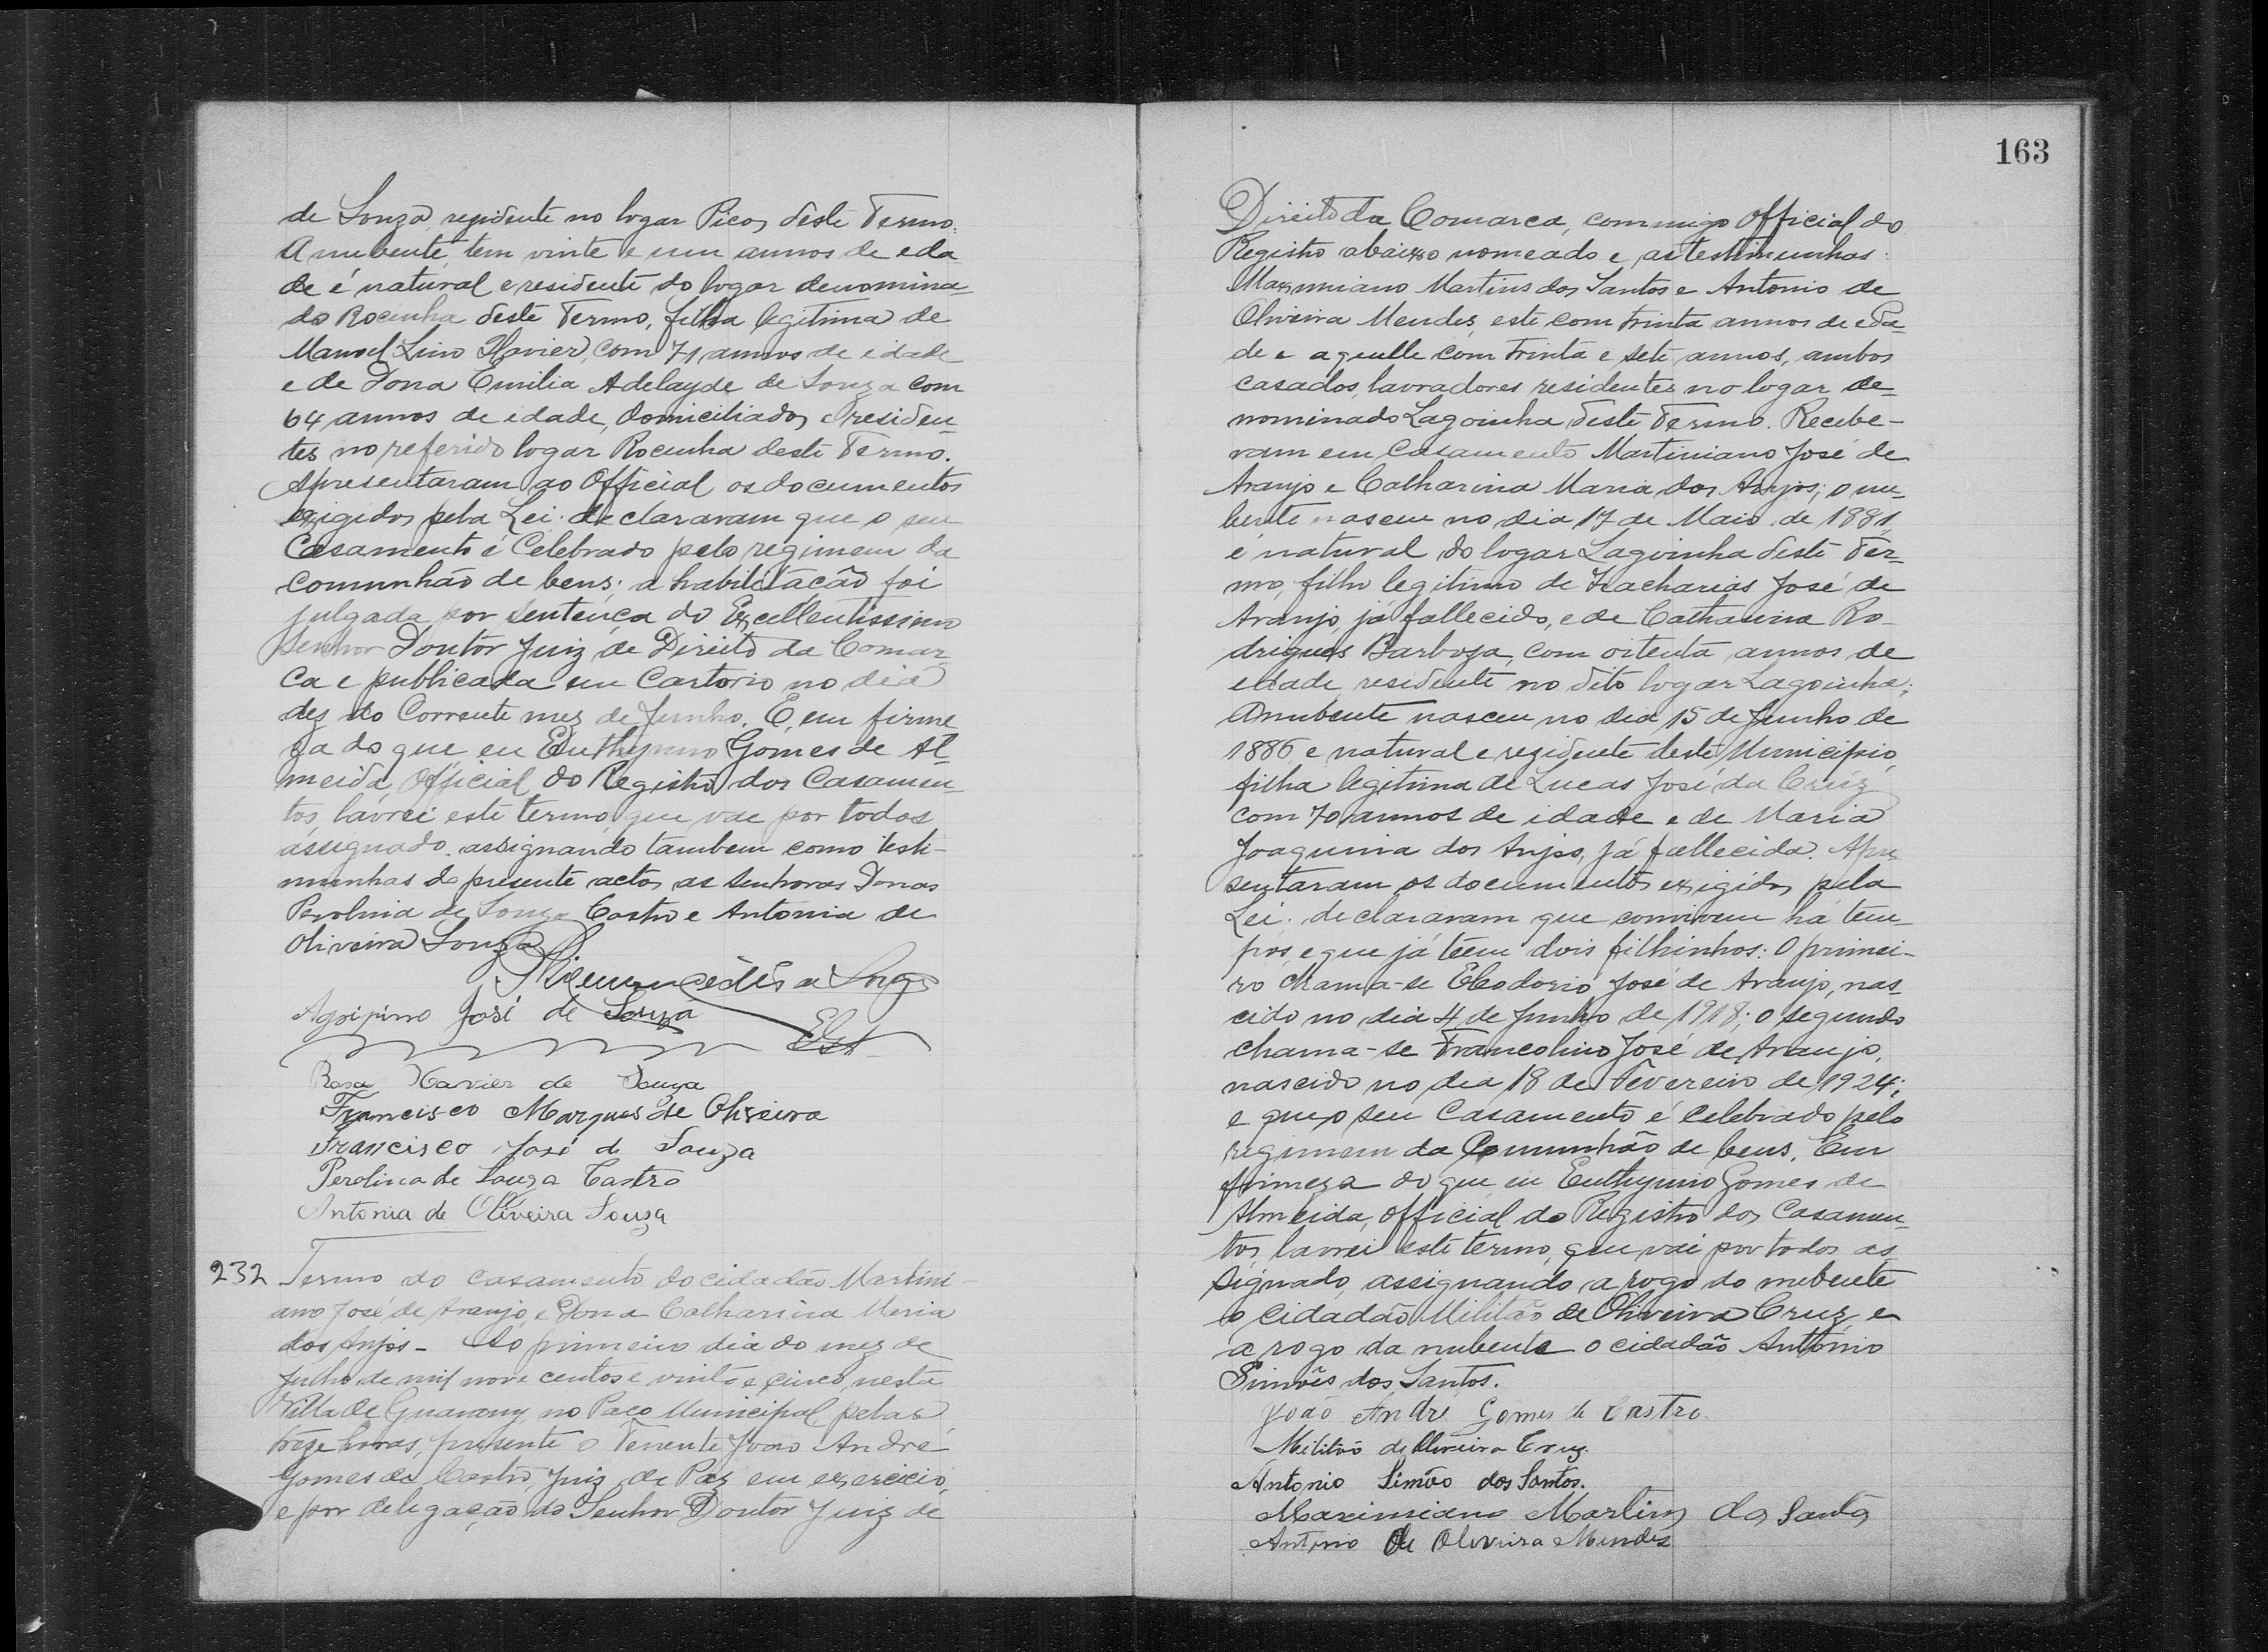 de Souza, residente no logar Picos deste Termo.
A nubente tem vinte e um annos de eda
de é natural e residente do logar denomina-
do Rocinha deste Termo, filha legitima de
Manoel Lino Xavier, com 71 annos de idade
e de Dona Emilia Adelayde de Souza com
64 annos de idade, domiciliados e residen-
tes no referido logar Rocinha deste Termo.
Apresentaram ao Official os documentos
exigidos pela Lei: declararam que o seu
Casamento é Celebrado pelo regimem da
comunhão de bens; a habilitação foi
julgada por sentença do Excellentissimo
Senhor Doutor Juiz de Direito da Comar-
ca e publicada em Cartorio no dia
dez do Corrente mez de Junho. E, em firme
za do que eu Euthymio Gomes de Al-
meida, Official do Registro dos Casamen-
tos, lavrei este termo, que vae por todos
assignado. assignando tambem como teste-
munhas do presente acto, as senhoras Donas
Perolina de Souza Castro e Antonia de
Oliveira Souza
Agripino José de Souza
Rosa Xavier de Souza
Francisco Marques de Oliveira
Francisco José de Souza
Perolina de Souza Castro
Antonia de Oliveira Sousa
232 Termo do casamento do cidadão Martini-
ano José de Araujo, e Dona Catharina Maria
dos Anjos - Ao primeiro dia do mez de
Julho de mil nove centos e vinte e cinco, nesta
Villa de Guarany, no Paço Municipal, pelas
treze horas, presente o Tenente João André
Gomes de Castro, Juiz de Paz em exercicio,
e por delegação do Senhor Doutor Juiz de
163
Direito da Comarca, commigo Official do
Registro abaixo nomeado e, as testimunhas:
Maxmiano Martins dos Santos e Antonio de
Oliveira Mendes, este com trinta annos de eda-
de e aquelle com trinta e sete annos, ambos
casados, lavradores residentes no logar de-
nominado Lagoinha deste Termo. Recebe-
ram em Casamento Martiniano José de
Araujo e Catharina Maria dos Anjos; o nu-
bente nasceu no dia 17 de Maio de 1881,
é natural do logar Lagoinha deste Ter-
mo, filho legitimo de Zacharias José de
Araujo, já fallecido, e de Catharina Ro-
drigues Barboza, com oitenta annos de
edade, residente no dito logar Lagoinha;
A nubente nasceu no dia 15 de Junho de
1886 e natural e rezidente deste Municipio,
filha legitima de Lucas José da Cruz
com 70 annos de idade e de Maria
Joaquina dos Anjos, já fallecida. Apre-
sentaram os documentos exigidos pela
Lei: declararam que convivem há tem-
pos, e que já têem dois filhinhos: O primei-
ro chama-se Eleodorio José de Araujo, nas-
cido no dia 4 de Junho de 1918; o segundo
chama-se Francolino José de Araujo,
nascido no dia 18 de Fevereiro de 1924;
e que o seu Casamento é celebrado pelo
regimem da Comunhão de bens. Em
firmeza do que eu Euthymio Gomes de
Almeida, official do Registro dos Casamen-
tos, lavrei este termo, que vai por todos as
signado, assignando a rogo do nubente
o cidadão Militão de Oliveira Cruz, e
a rogo da nubente o cidadão Antonio
Simões dos Santos.
João André Gomes de Castro
Militão de Oliveira Cruz.
Antonio Simões dos Santos.
Maximiano Martins dos Santos
Antonio de Oliveira Mendes